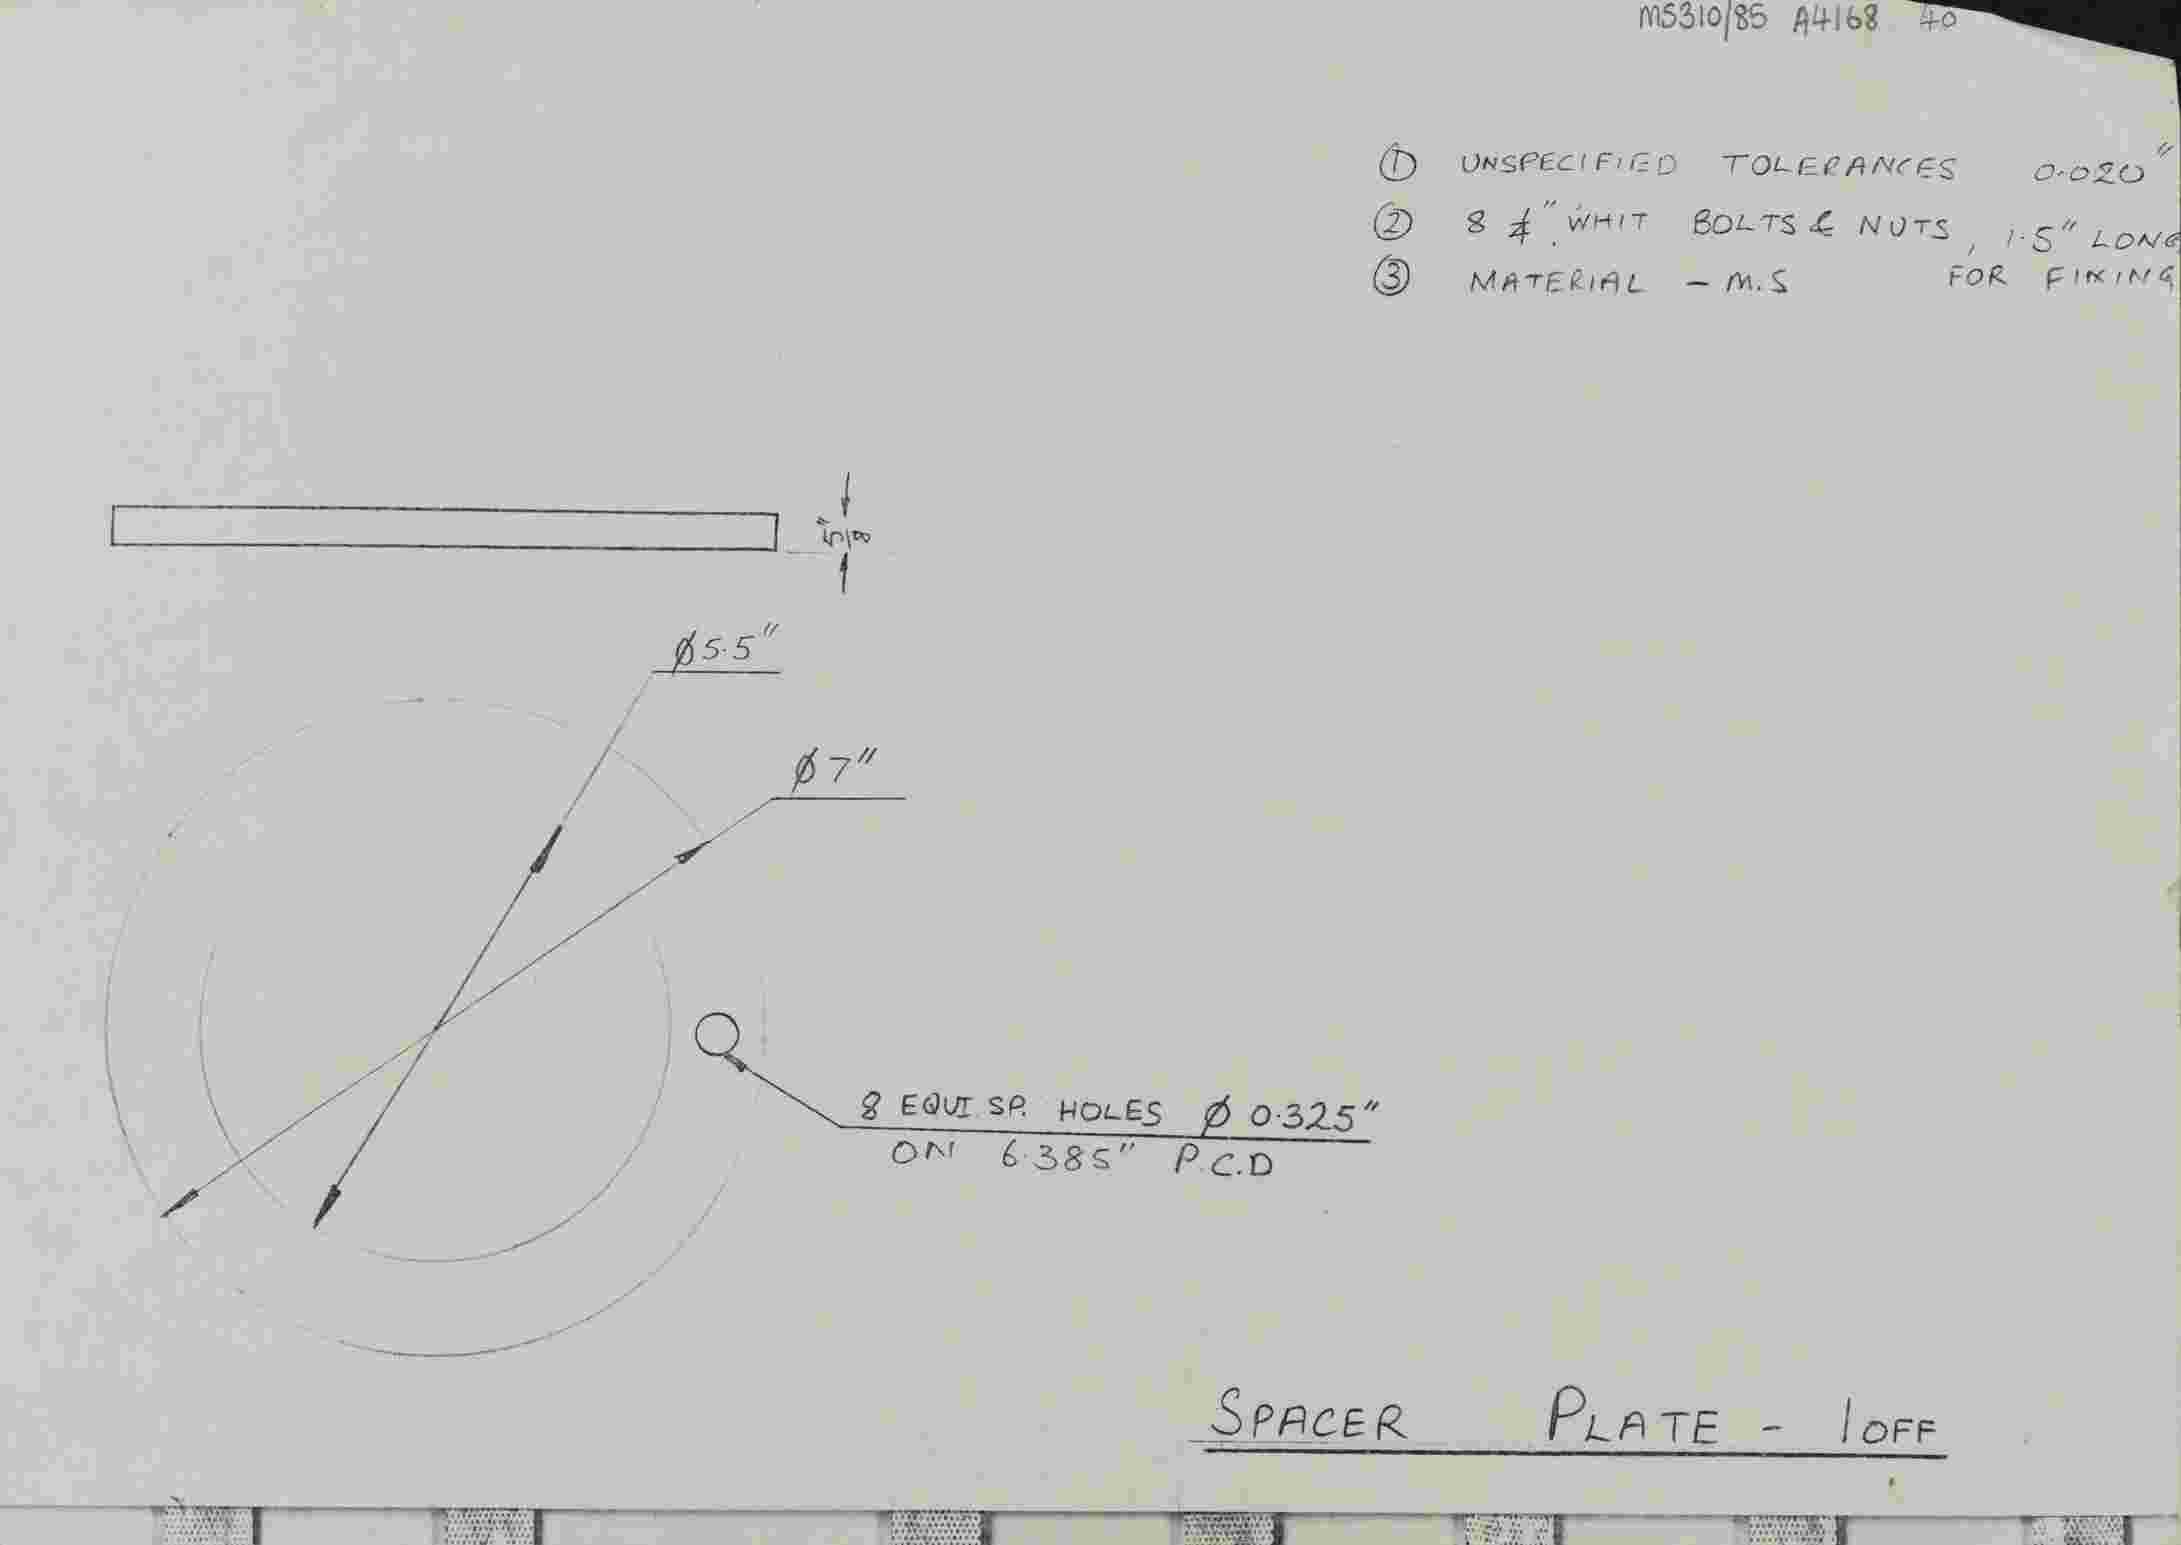 MS310/85 A4168 40
① UNSPECIFIED TOLERANCES 0.020"
② 8 ¼" WHIT BOLTS & NUTS, 1.5" LONG
FOR FIXING
③ MATERIAL - M.S
5/8"
Ø5.5"
Ø7"
8 EQUI SP. HOLES Ø 0.325"
ON 6.385" P.C.D
SPACER PLATE - 1 OFF